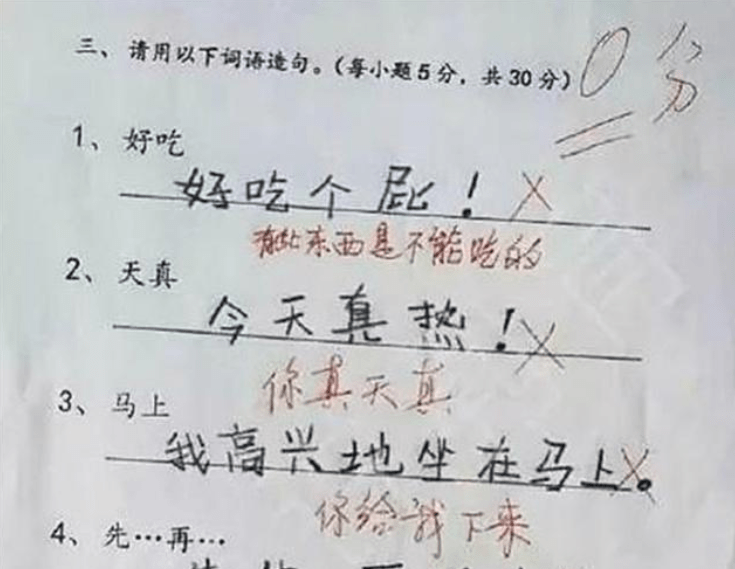 三、请用以下词语造句。(每小题5分,共30分) 0分
1、好吃
好吃个屁!
有些东西是不能吃的
2、天真
今天真热!
你真天真
3、马上
我高兴地坐在马上。
你给我下来
4、先…再…